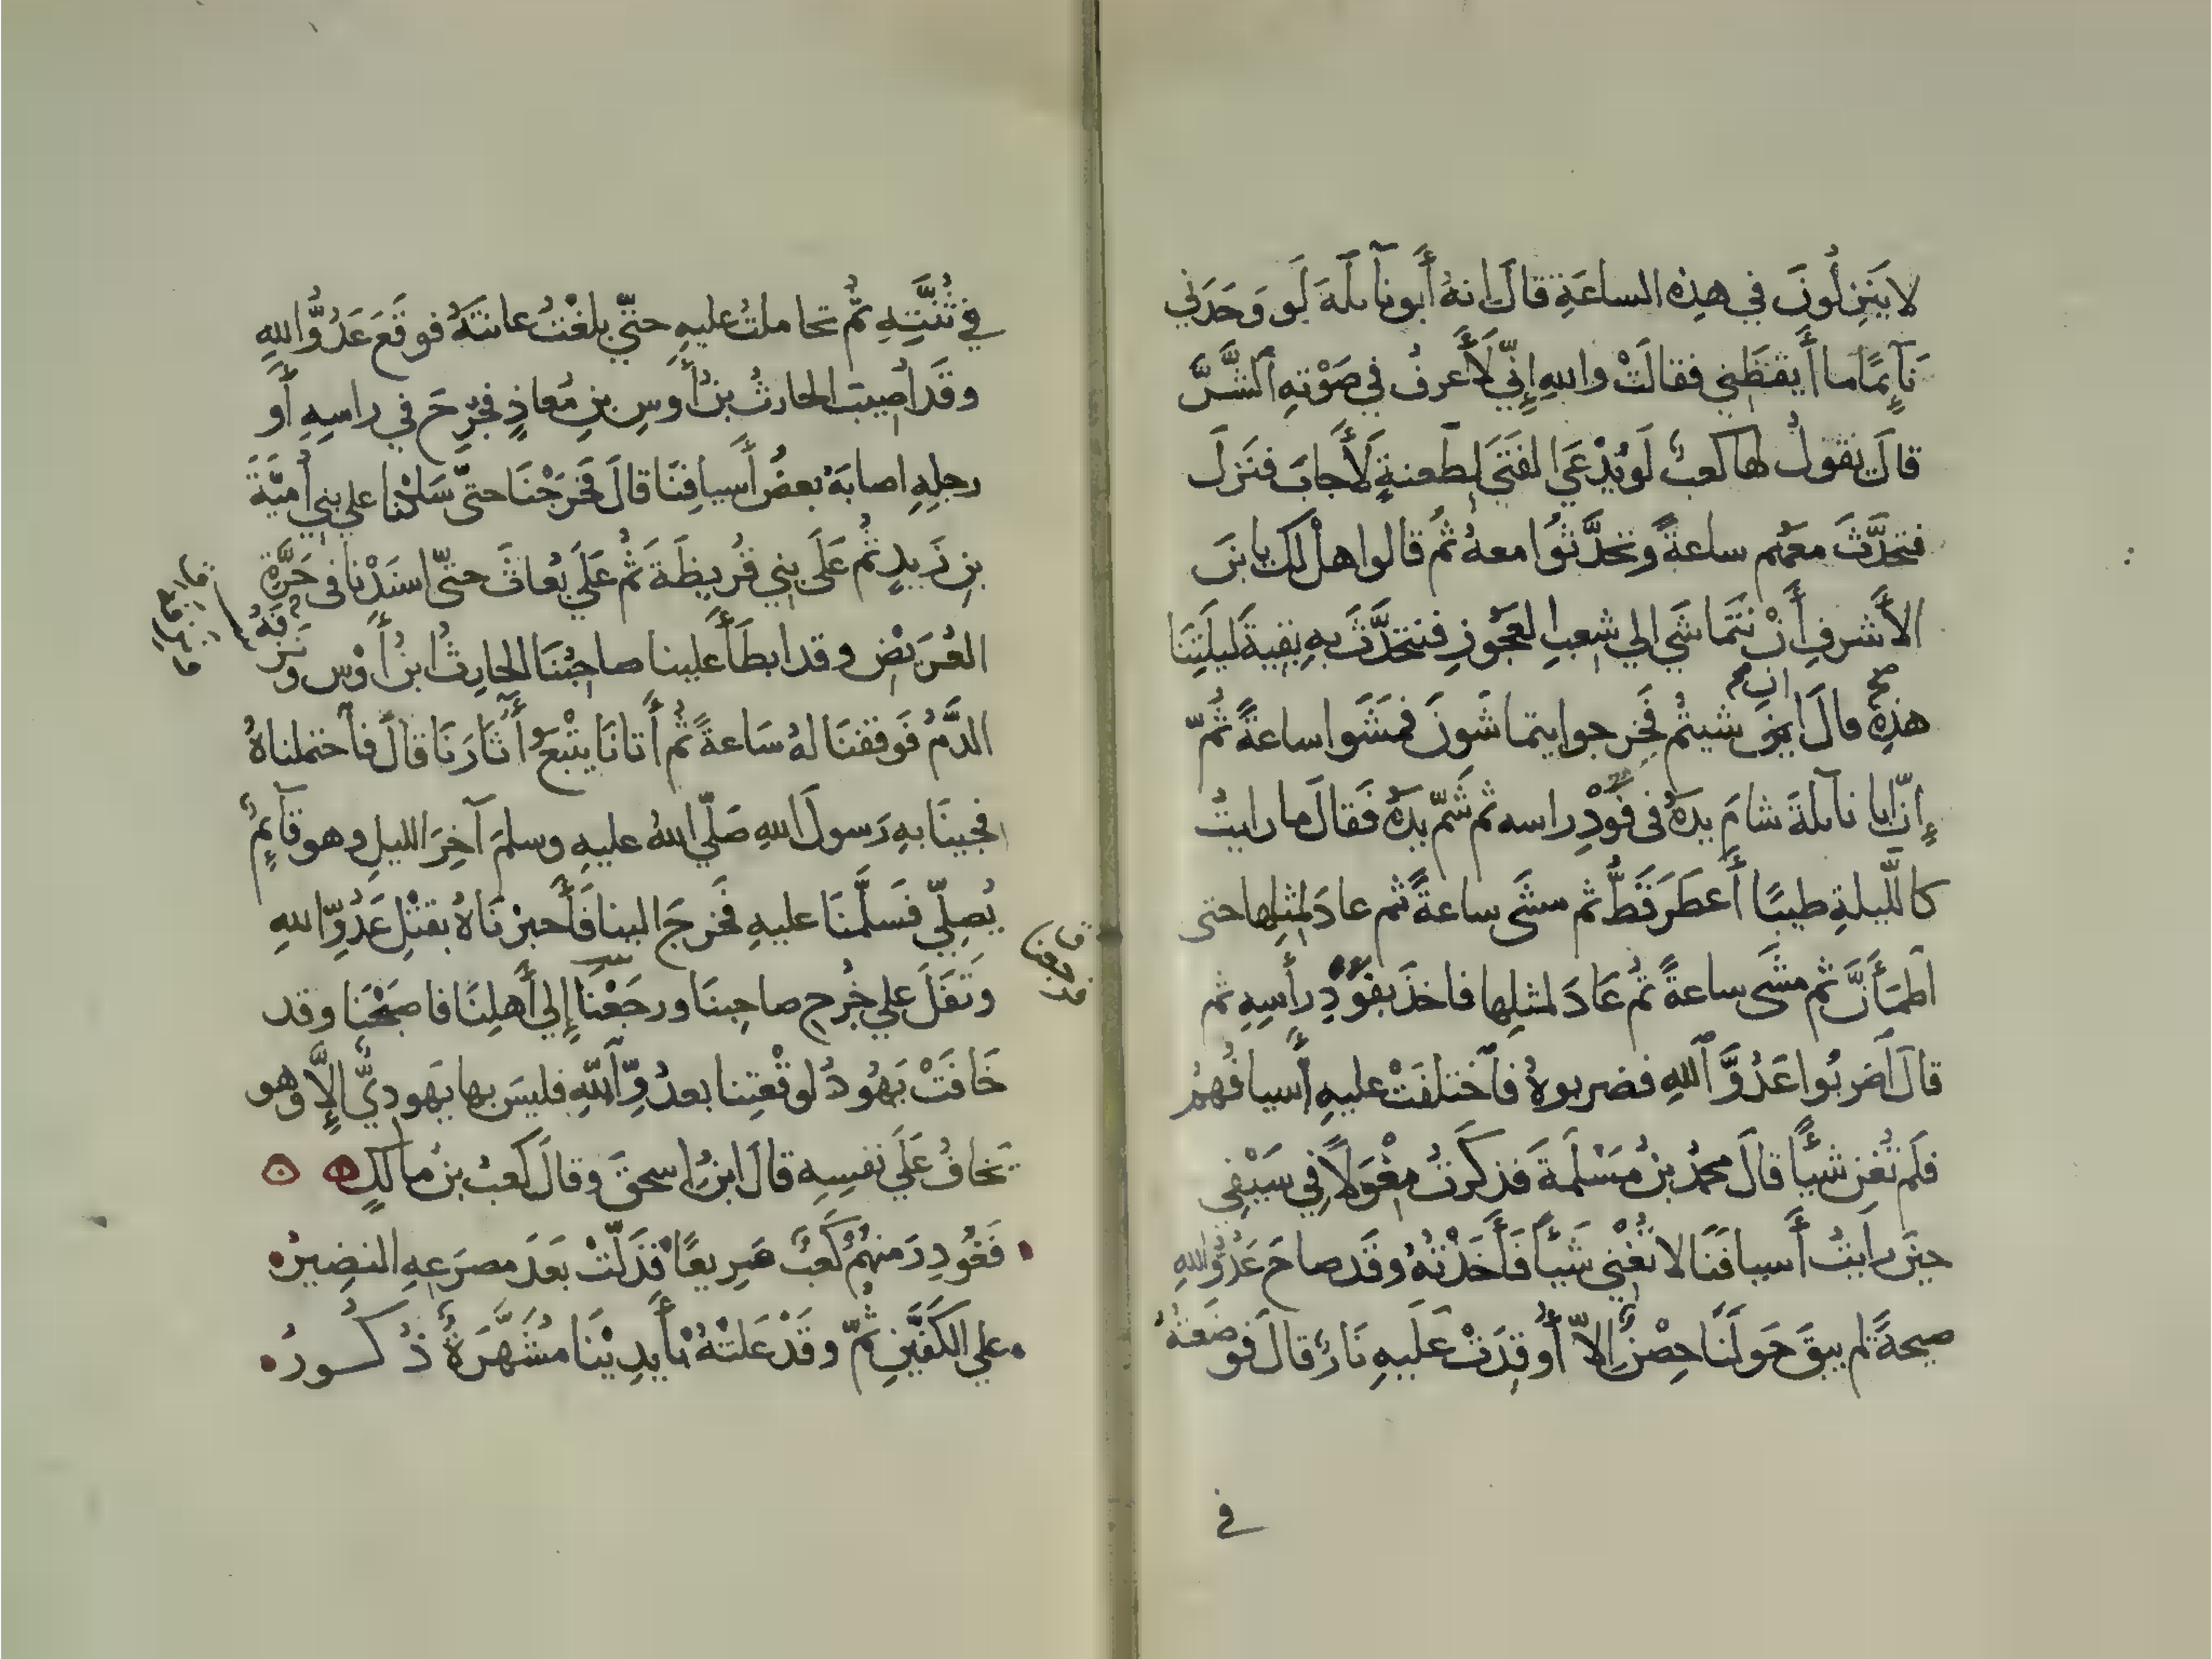 لا يَنزِلُونَ في هذِه الساعَةِ قالَ انهُ أَبو نآىلَةَ لَو وَجَدَني
نَآئِمًا ما أَيقَظَني فقالَتْ واللهِ إِنّي لَأَعرفُ في صَوْتِهِ الشَّرَّ
قالَ يقولُ لها كعبٌ لَو يُدْعَي الفَتَي لِطَعنةٍ لَأَجابَ فنَزلَ
فتحدَّثَ معَهُم ساعةً وتحدَّثُوا معهُ ثُم قالوا هلْ لكَ يا بنَ
الأَشرفِ أَنْ نَتَماشَي الي شِعبِ العجُوزِ فنتحدَّثَ بهِ بقيةَ ليلَتِنَا
هذِهِ قالَ إن شيتُم فَخرجوا يتماشَونَ فمَشَوا ساعةً ثُمّ
إِنّ أبا نآىلةَ شامَ يدَهُ في فَوْدِ راسه ثم شَمّ يدَهُ فَقالَ ما رايتُ
كاللَّيلةِ طيبًا أَعطَرَ قَطُّ ثم مشَى ساعةً ثم عادَ لمثلِها حتى
اطمَأَنَّ ثم مشَى ساعةً ثُم عَادَ لمثلِها فاخذَ بفَودِ رأسِهِ ثم
قالَ اضربُوا عَدُوَّ اللهِ فضربوهُ فاختلفَتْ عليهِ أَسيافُهُم
فلَم تُغنِ شيأً قالَ محمدُ بنُ مَسْلَمةَ فذكَرتُ مِغْوَلاً في سَيْفِي
حينَ رايتُ أَسيافَنَا لا تُغْنِي شَيأً فَأَخَذْتُهُ وقَد صاحَ عَدُوُّ اللهِ
صيحةً لم يبقَ حَولَنَا حِصْنٌ إلاّ أُوقِدَتْ عَلَيهِ نَارٌ قالَ فوضَعتُهُ
في
في ثُنَّتِهِ ثُمّ تحاملتُ عليهِ حتّي بلغْتُ عانتَهُ فوقَعَ عَدُوُّ اللهِ
وقَد اُصِيبَ الحارثُ بنُ أَوسِ بنِ مُعاذٍ فجُرِحَ في راسِهِ أَو
رجلِهِ اصابَهُ بعضُ أَسيافِنَا قالَ فَخَرَجْنَا حتّى سَلكْنا علي بني أُميَّةَ
بنِ زَيدٍ ثُم عَلَى بني قُريظَةَ ثُم عَلَي بُعاثَ حتّى اسنَدْنا في حَرَّةِ
العُرَيْضِ وقد ابطَأَ علينا صاحبُنَا الحارِثُ ابنُ أَوْس ونَزَفَهُ
الدَّمُ فَوقفنَا لهُ سَاعةً ثُم أَتانَا يتْبَعُ آثارَنَا قالَ فاحتملناهُ
فجينَا بهِ رَسولَ اللهِ صَلّي اللهُ عليهِ وسلمَ آخِرَ الليلِ وهو قآئِمٌ
يُصلِّي فسَلَّمنَا عليهِ فخرجَ الينا فَأَخبرْنَاهُ بقتْلِ عَدُوِّ اللهِ
وتَفَلَ علي جُرحِ صاحِبنَا ورجَعْنَا إِلي أَهلِنَا فاصبَحْنَا وقد
خَافَتْ يَهُودُ لوقْعتِنا بعدُوِّ اللهِ فليسَ بها يَهوديٌّ إِلَّا وهو
يَخافُ عَلَي نفسِهِ قالَ ابنُ اسحقَ وقالَ كَعبُ بنُ مالكٍ
فَغُودِرَ منهُمُ كَعبٌ صَريعًا فَذَلّتْ بَعدَ مصرَعِهِ النضِيرُ
علي الكَفَّينِ ثَمّ وقَدْ عَلتْهُ بأَيدِيْنَا مُشَهَّرَةٌ ذُكُورُ